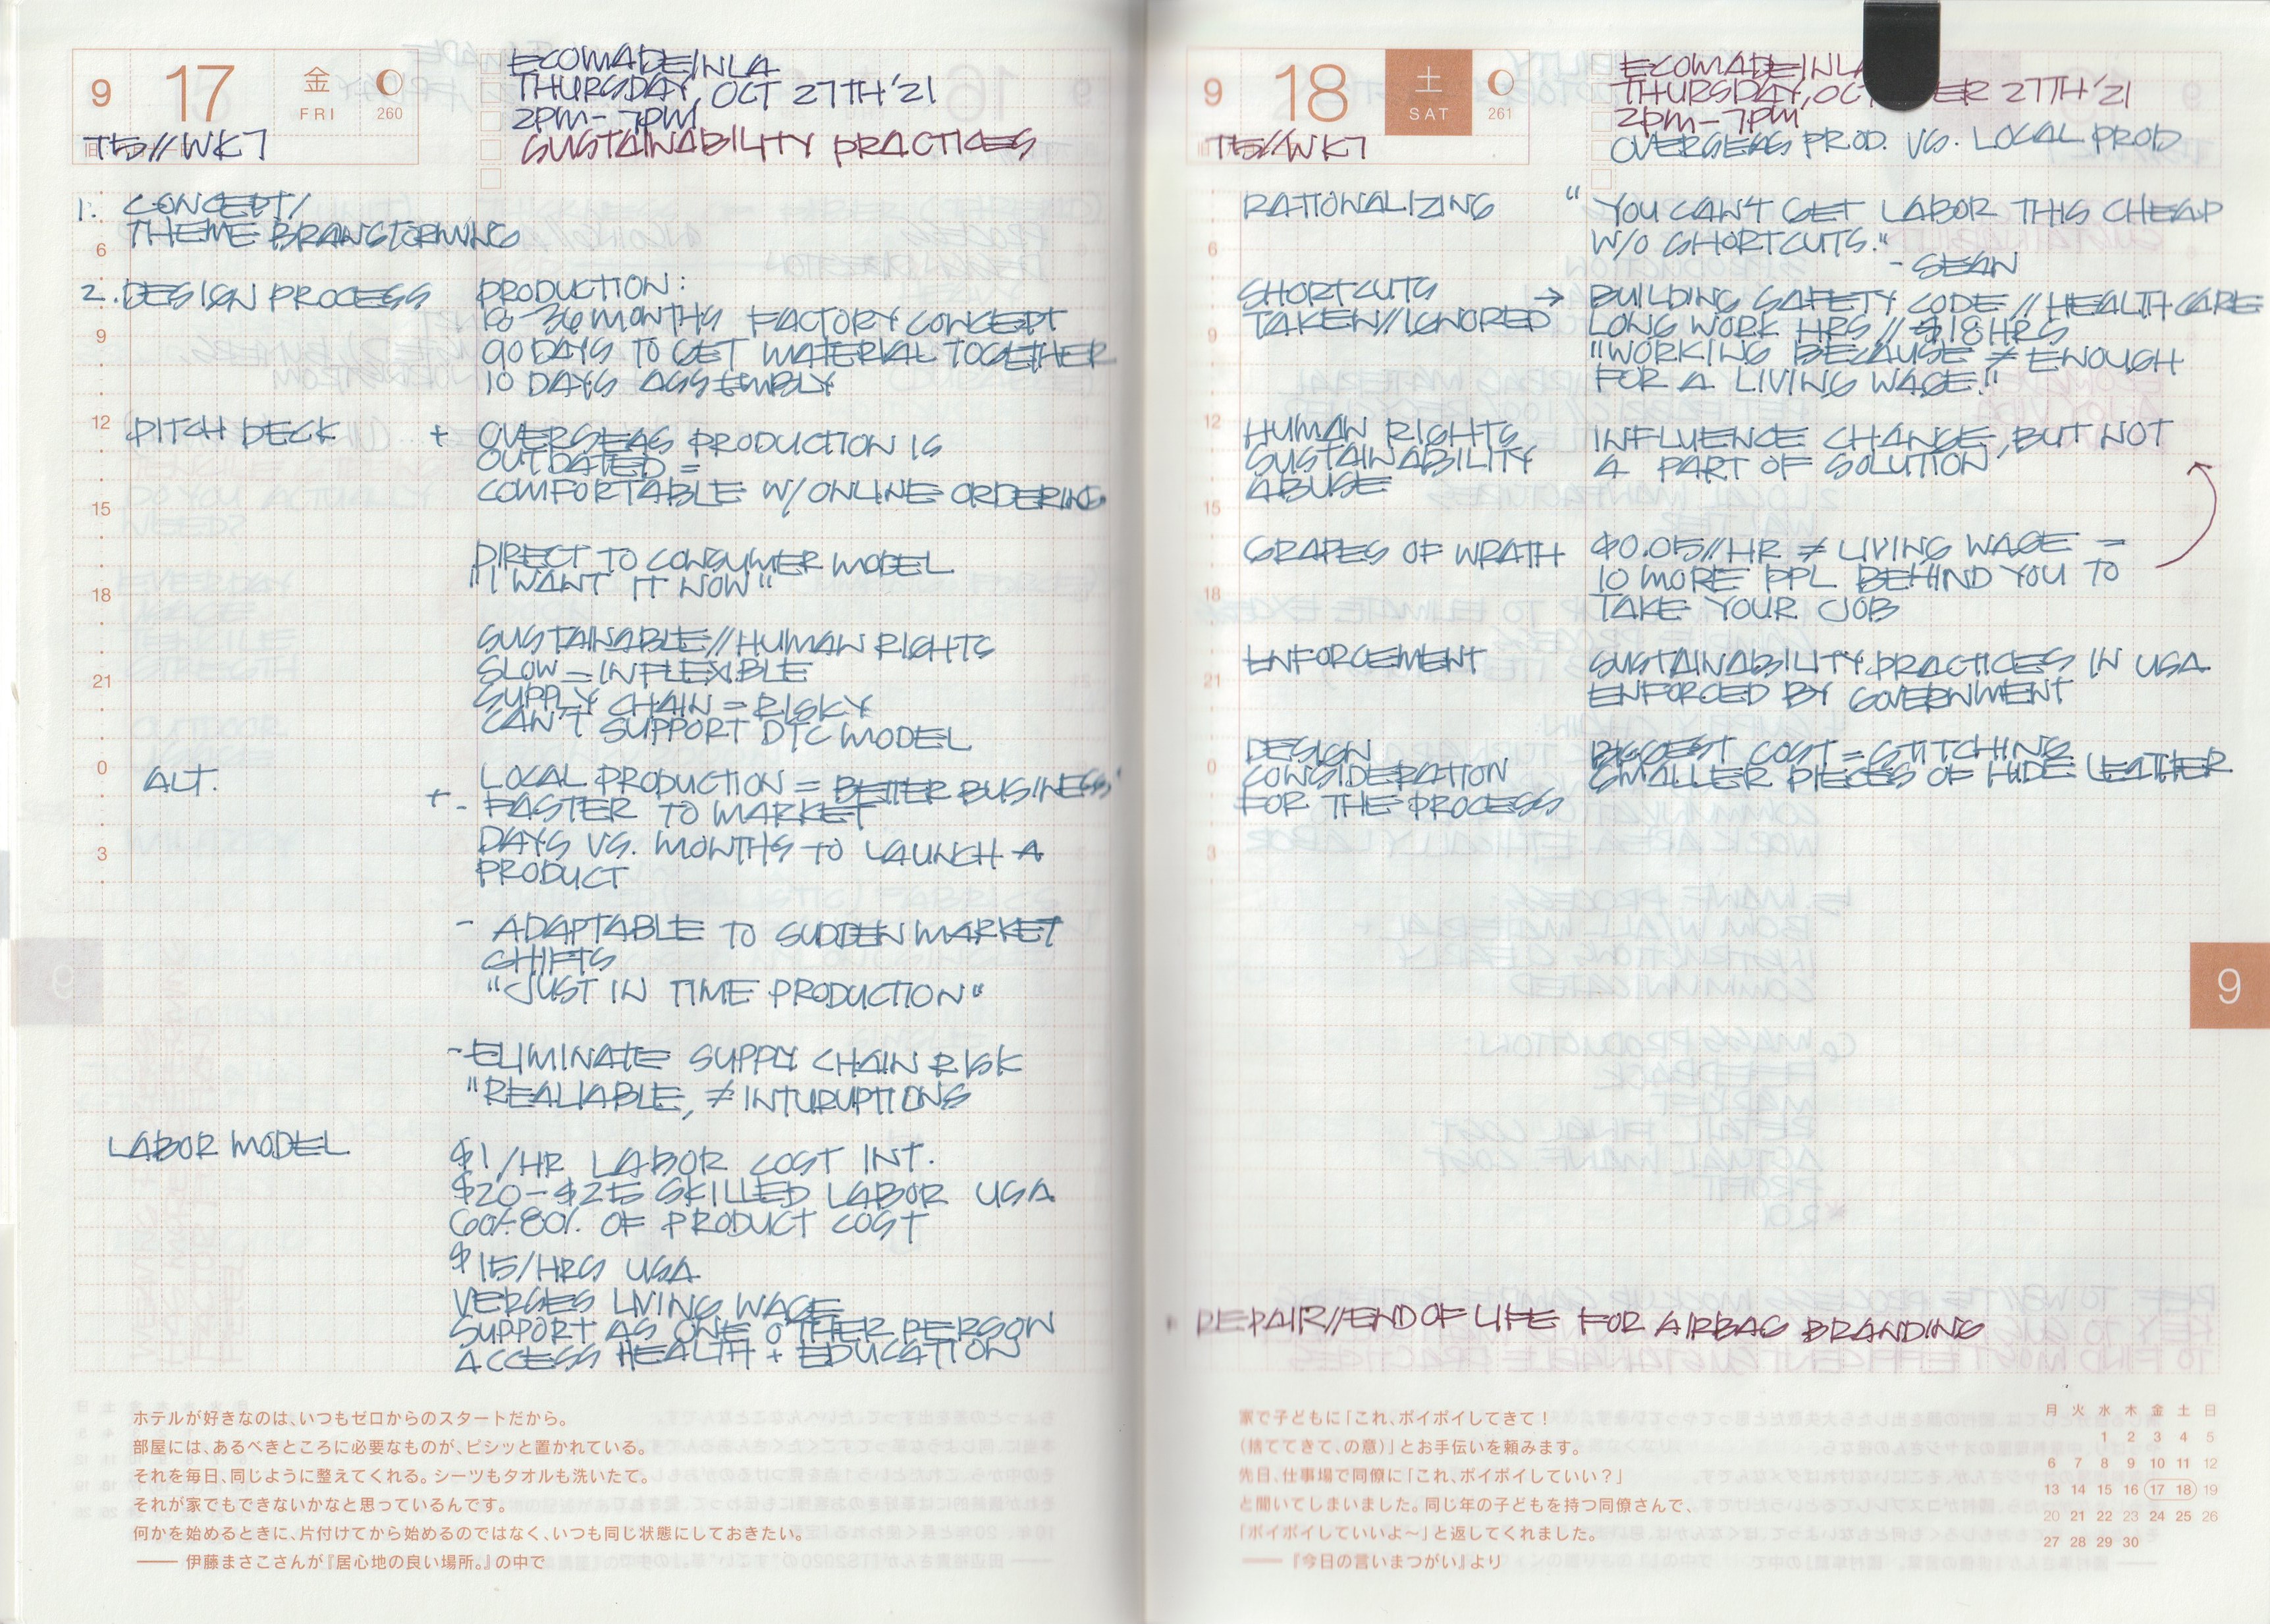 9 17 金 FRI 260
T5//WK7
ECOMADEINLA
THURSDAY, OCT 27TH'21
2PM-7PM
SUSTAINABILITY PRACTICES
1. CONCEPT/
THEME BRAINSTORMING
2. DESIGN PROCESS
PRODUCTION:
18-36 MONTHS FACTORY CONCEPT
90 DAYS TO GET MATERIAL TOGETHER
10 DAYS ASSEMBLY
PITCH DECK + OVERSEAS PRODUCTION IS
OUTDATED =
COMFORTABLE W/ONLINE ORDERING
DIRECT TO CONSUMER MODEL
"I WANT IT NOW"
SUSTAINABLE//HUMAN RIGHTS
SLOW = INFLEXIBLE
SUPPLY CHAIN = RISKY
CAN'T SUPPORT DTC MODEL
ALT. + LOCAL PRODUCTION = BETTER BUSINESS
- FASTER TO MARKET
DAYS VS. MONTHS TO LAUNCH A
PRODUCT
- ADAPTABLE TO SUDDEN MARKET
SHIFTS
"JUST IN TIME PRODUCTION"
- ELIMINATE SUPPLY CHAIN RISK
"REALIABLE, ≠ INTURUPTIONS
LABOR MODEL
$1/HR LABOR COST INT.
$20-$25 SKILLED LABOR USA
60%-80% OF PRODUCT COST
$15/HRS USA
VERGES LIVING WAGE
SUPPORT AS ONE OTHER PERSON
ACCESS HEALTH + EDUCATION
6
9
12
15
18
21
0
3
ホテルが好きなのは、いつもゼロからのスタートだから。
部屋には、あるべきところに必要なものが、ピシッと置かれている。
それを毎日、同じように整えてくれる。シーツもタオルも洗いたて。
それが家でもできないかなと思っているんです。
何かを始めるときに、片付けてから始めるのではなく、いつも同じ状態にしておきたい。
—— 伊藤まさこさんが『居心地の良い場所。』の中で
9 18 土 SAT 261
T5//WK7
ECOMADEINLA
THURSDAY, OCT ER 27TH'21
2PM-7PM
OVERSEAS PROD. VS. LOCAL PROD
RATIONALIZING
"YOU CAN'T GET LABOR THIS CHEAP
W/O SHORTCUTS."
- SEAN
SHORTCUTS
TAKEN//IGNORED →
BUILDING SAFETY CODE // HEALTHCARE
LONG WORK HRS // 18 HRS
"WORKING BECAUSE ≠ ENOUGH
FOR A LIVING WAGE!"
HUMAN RIGHTS
SUSTAINABILITY
ABUSE
INFLUENCE CHANGE, BUT NOT
A PART OF SOLUTION
GRAPES OF WRATH
$0.05//HR ≠ LIVING WAGE =
10 MORE PPL BEHIND YOU TO
TAKE YOUR JOB
ENFORCEMENT
SUSTAINABILITY PRACTICES IN USA
ENFORCED BY GOVERNMENT
DESIGN
CONSIDERATION
FOR THE PROCESS
BIGGEST COST = STITCHING
SMALLER PIECES OF HIDE LEATHER
6
9
12
15
18
21
0
3
9
REPAIR//END OF LIFE FOR AIRBAG BRANDING
家で子どもに「これ、ポイポイしてきて！
（捨ててきて、の意）」とお手伝いを頼みます。
先日、仕事場で同僚に「これ、ポイポイしていい？」
と聞いてしまいました。同じ年の子どもを持つ同僚さんで、
「ポイポイしていいよ〜」と返してくれました。
——『今日の言いまつがい』より
月 火 水 木 金 土 日
1 2 3 4 5
6 7 8 9 10 11 12
13 14 15 16 17 18 19
20 21 22 23 24 25 26
27 28 29 30